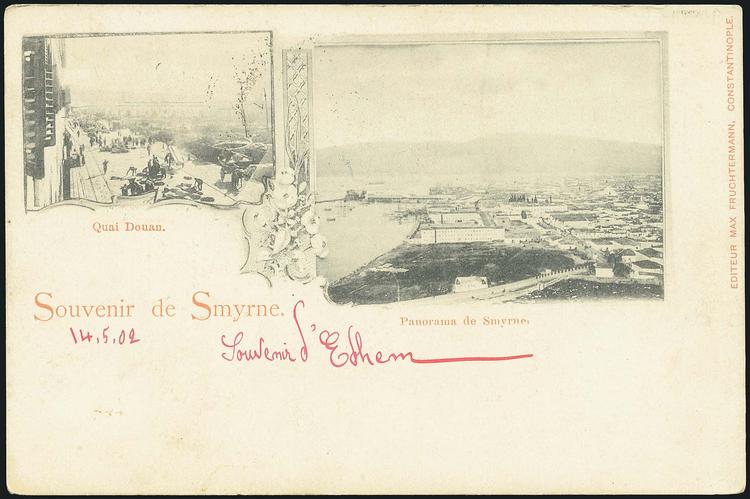 Quai Douan.
Souvenir de Smyrne.
Panorama de Smyrne.
14.5.02
Souvenir d'Edhem
EDITEUR MAX FRUCHTERMANN, CONSTANTINOPLE.